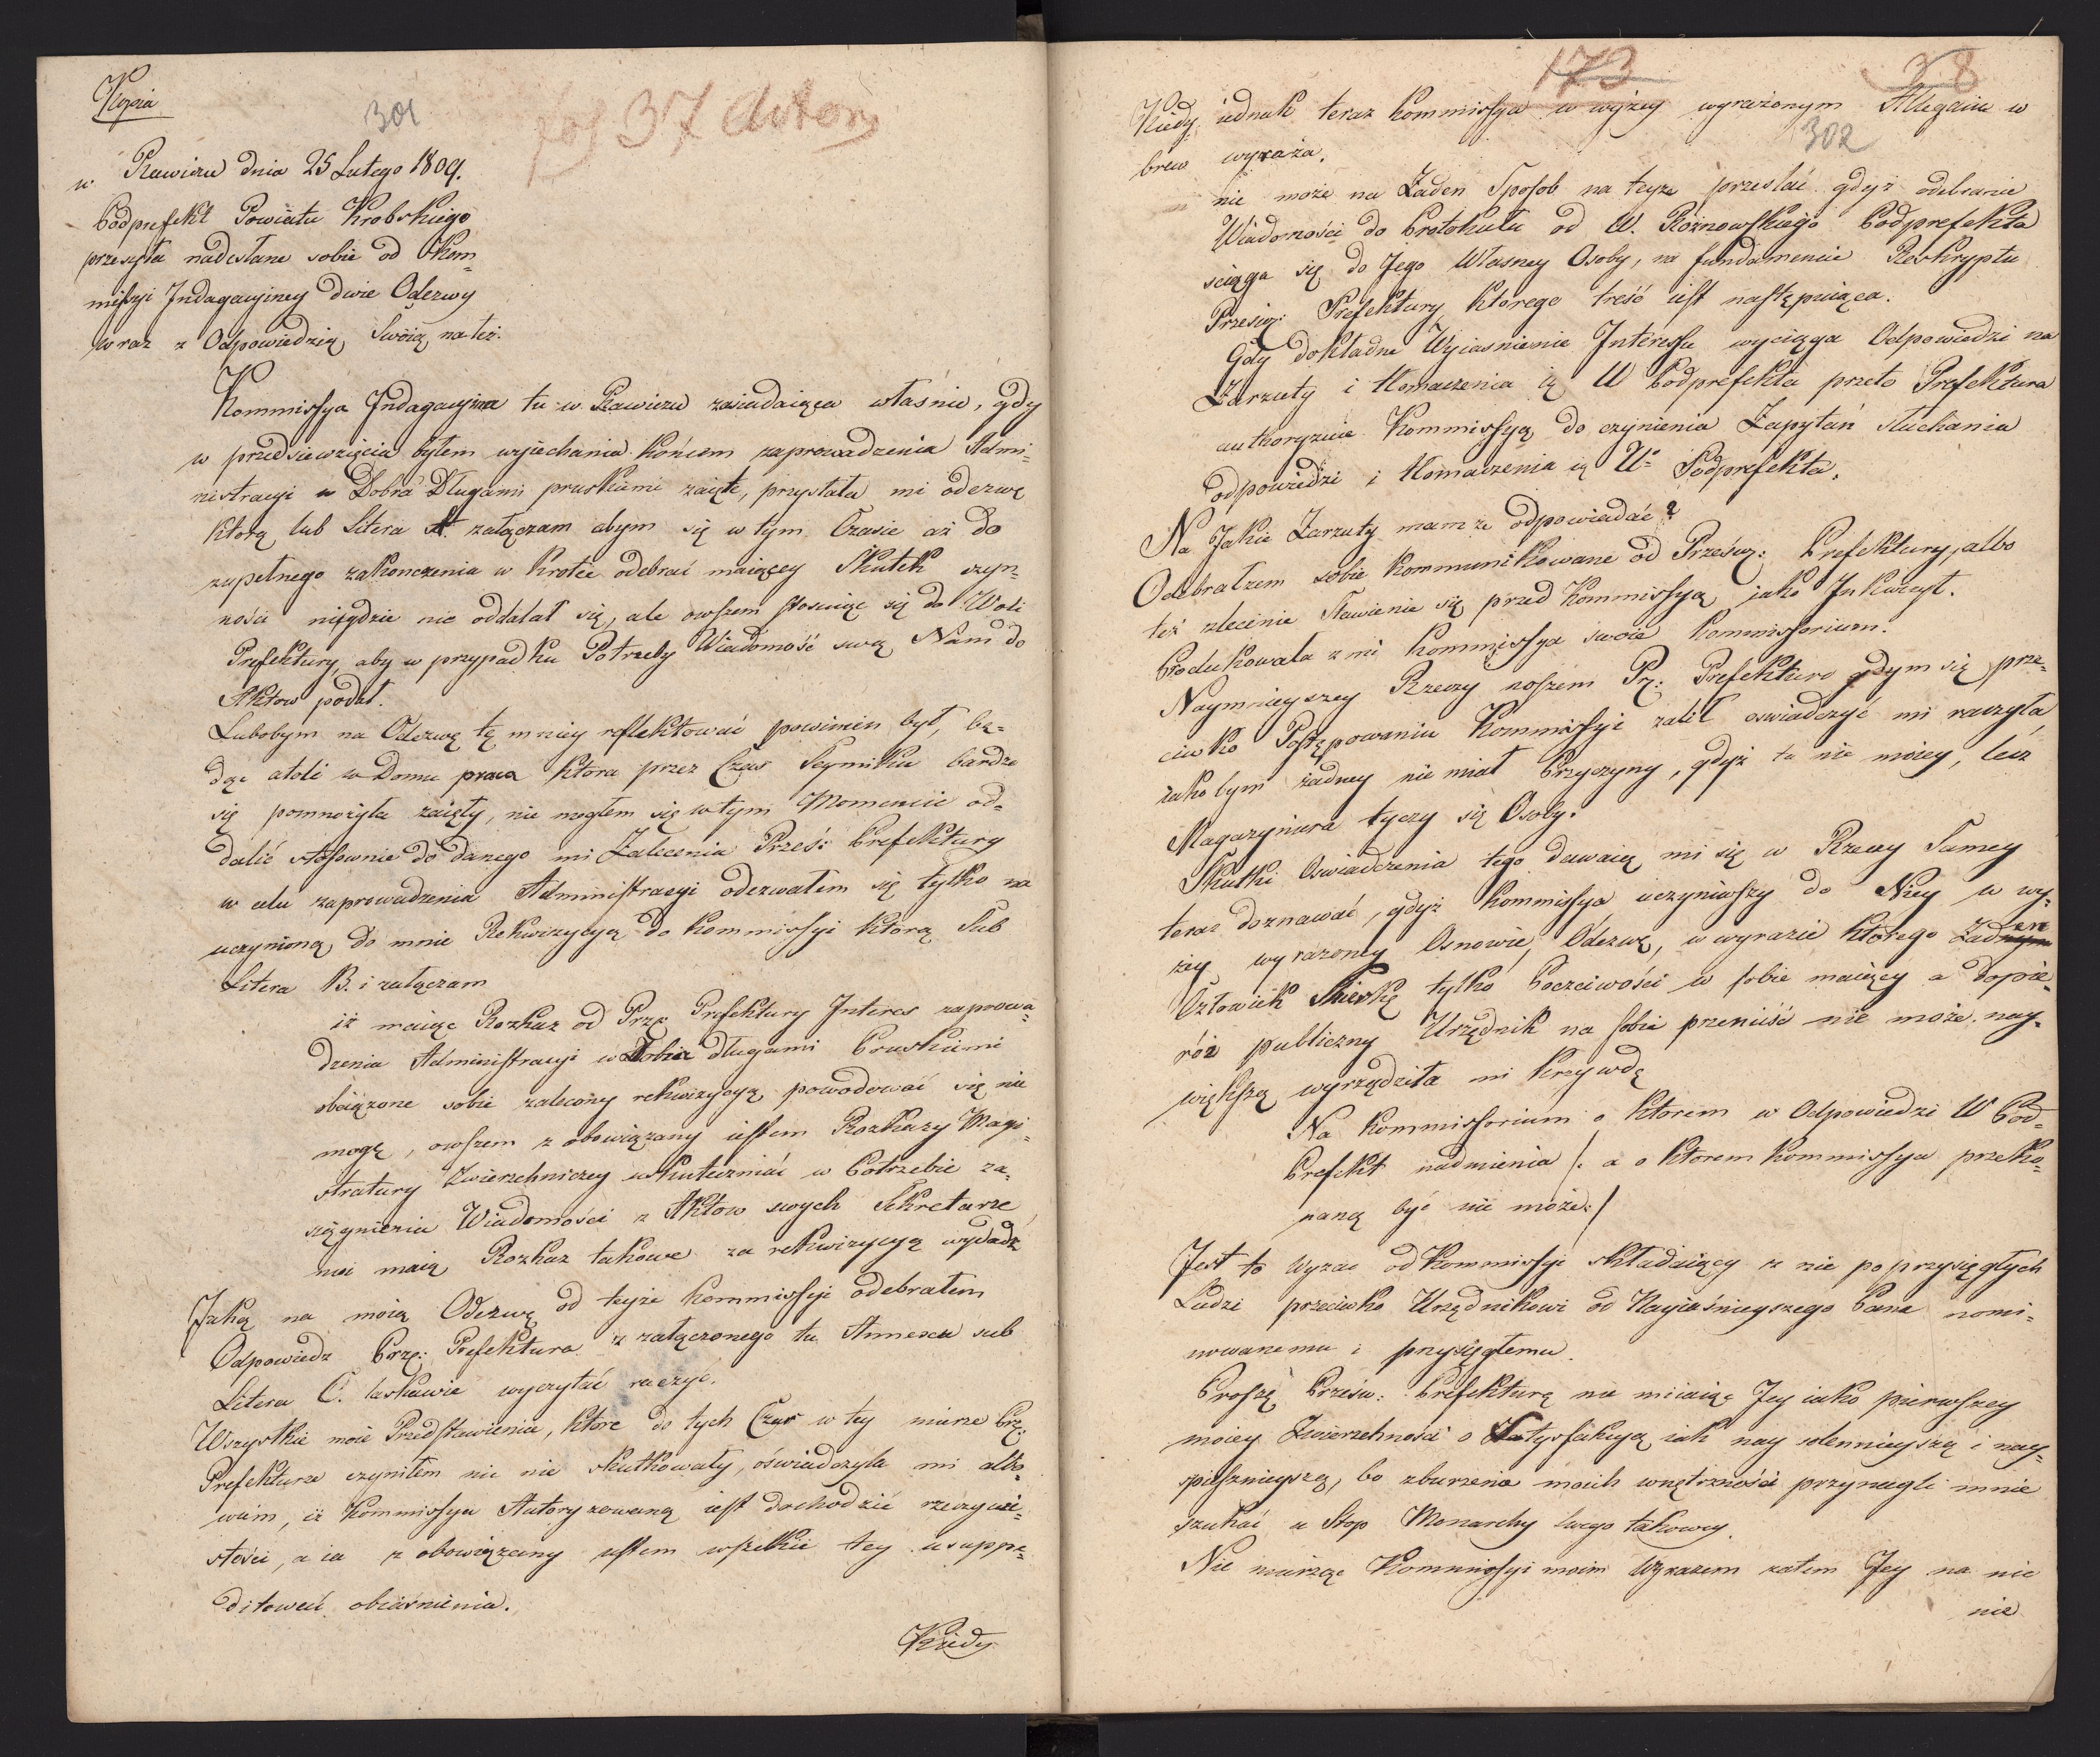 Kopia
301
fol 37 Actorum
w Rawiczu dnia 25 Lutego 1809.
Podprefekt Powiatu Krobskiego
przesyła nadesłane sobie od Kom-
missyi Indagacyiney dwie Odezwy
wraz z Odpowiedzią Swoią na też.
Kommissya Indagacyina tu w Rawiczu zasiadaiąca właśnie, gdy
w przedsiewzięciu byłem wyiechania końcem zaprowadzenia Admi-
nistracyi w Dobra Długami pruskiemi zaięte, przysłała mi odezwę
którą sub Litera A. załączam abym się w tym Czasie aż do
zupełnego zakonczenia w krotce odebrać maiącey Skutek czyn-
ności nigdzie nie oddalał się, ale owszem stosuiąc się do Woli
Prefektury, aby w przypadku Potrzeby Wiadomość swą Nam do
Aktow podał.
Lubobym na Odezwę tę mniey reflektować powinien był, bę-
dąc atoli w Domu praca ktora przez Czas Seymiku bardzo
się pomnożyła zaięty, nie mogłem się w tym Momencie od-
dalić stosownie do danego mi Zalecenia Prześ: Prefektury
w celu zaprowadzenia Administracyi odezwałem się tylko na
uczynioną do mnie Rekwizycyą do Kommissyi którą Sub
Litera B. i załączam
iż maiąc Rozkaz od Prze: Prefektury Interes zaprowa-
dzenia Administracyi w Dobra długami Pruskiemi
obciążone sobie zalecony rekwizycyą powodować się nie
mogę, owszem z obowiązany iestem Rozkazy Magi-
stratury Zwierzchniczey uskuteczniać w Potrzebie za-
siągnienia Wiadomości z Aktow swych Sekretarze
moi maią Rozkaz takowe za rekwizycyą wydadź
Jaką na moią Odezwę od teyże Kommissyi odebrałem
Odpowiedz Prze: Prefektura z załączonego tu Annexu sub
Litera C. łaskawie wyczytać raczyć.
Wszystkie moie Przedstawienia, ktore do tych Czas w tey mierze Prz:
Prefekturze czyniłem nic nie skutkowały, oświadczyła mi albo-
wiem, iż Kommissya Autoryzowaną iest dochodzić rzeczywi-
stości, a ia z obowiązany iestem wszelkie tey usuppe-
ditować obiaśnienia.
Kiedy
173
38
302
Kiedy iednak teraz Kommissya w wyżey wyrażonym Allegacie w
brew wyraża.
nie może na Żaden Sposob na teyże przesłać gdyż odebranie
Wiadomości do Protokułu od W. Rożnowskiego Podprefekta
sciąga się do Jego Własney Osoby, na fundamencie Reskryptu
Prześw: Prefektury, ktorego treść iest następuiąca.
Gdy dokładne Wyiasnienie Interessu wyciąga Odpowiedzi na
Zarzuty i tłomaczenia ię W Podprefekta przeto Prefektura
authoryzuie Kommissyą do czynienia Zapytań słuchania
odpowiedzi i tłomaczenia ię W: Podprefekta.
Na Jakie Zarzuty mam ze odpowiadać?
Odebrałzem sobie kommunikowane od Prześw: Prefektury, albo
też zlecenie Stawienie się przed Kommissyą iako Inkwizyt.
Produkowała z mi Kommissya swoie Kommissorium.
Naymnieyszey Rzeczy owszem Prz: Prefekturo gdym się prze-
ciwko Postępowaniu Kommissyi żalił oswiadczyć mi raczyła
iakobym żadney nie miał Przyczyny, gdyż to nie moiey, lecz
Magazyniera tyczy się Osoby.
Skutki Oswiadczenia tego dawaią mi się w Rzeczy Samey
teraz doznawać, gdyż Kommissya uczyniwszy do Niey w wy-
żey wyrażoney Osnowie, Odezwę, w wyrazie którego Żaden
Człowiek Skierkę tylko Poczciwości w sobie maiący a dopie-
róż publiczny Urzędnik na sobie przenieść nie może nay-
większą wyrządziła mi krzywdę
Na Kommissorium o ktorem w Odpowiedzi W Pod-
Prefekt nadmienia /: a o ktorem Kommissya przeko-
naną być nie może:/
Jest to Wyraz od Kommissyi składaiący z nie poprzysięgłych
Ludzi przeciwko Urzędnikowi od Nayiaśnieyszego Pana nomi-
nowanemu i przysięgłemu.
Proszę Prześw: Prefekturę nie miiaiąc Jey iako pierwszey
moiey Zwierzchności o Satysfakcyą iak nay solennieyszą i nay-
spiesznieyszą, bo zburzenie moich wnętrzności przynagli mnie
szukać u Stop Monarchy Swego takowey.
Nie ważąc Kommissyi moim Wyrazem zatem Jey na nic
nie